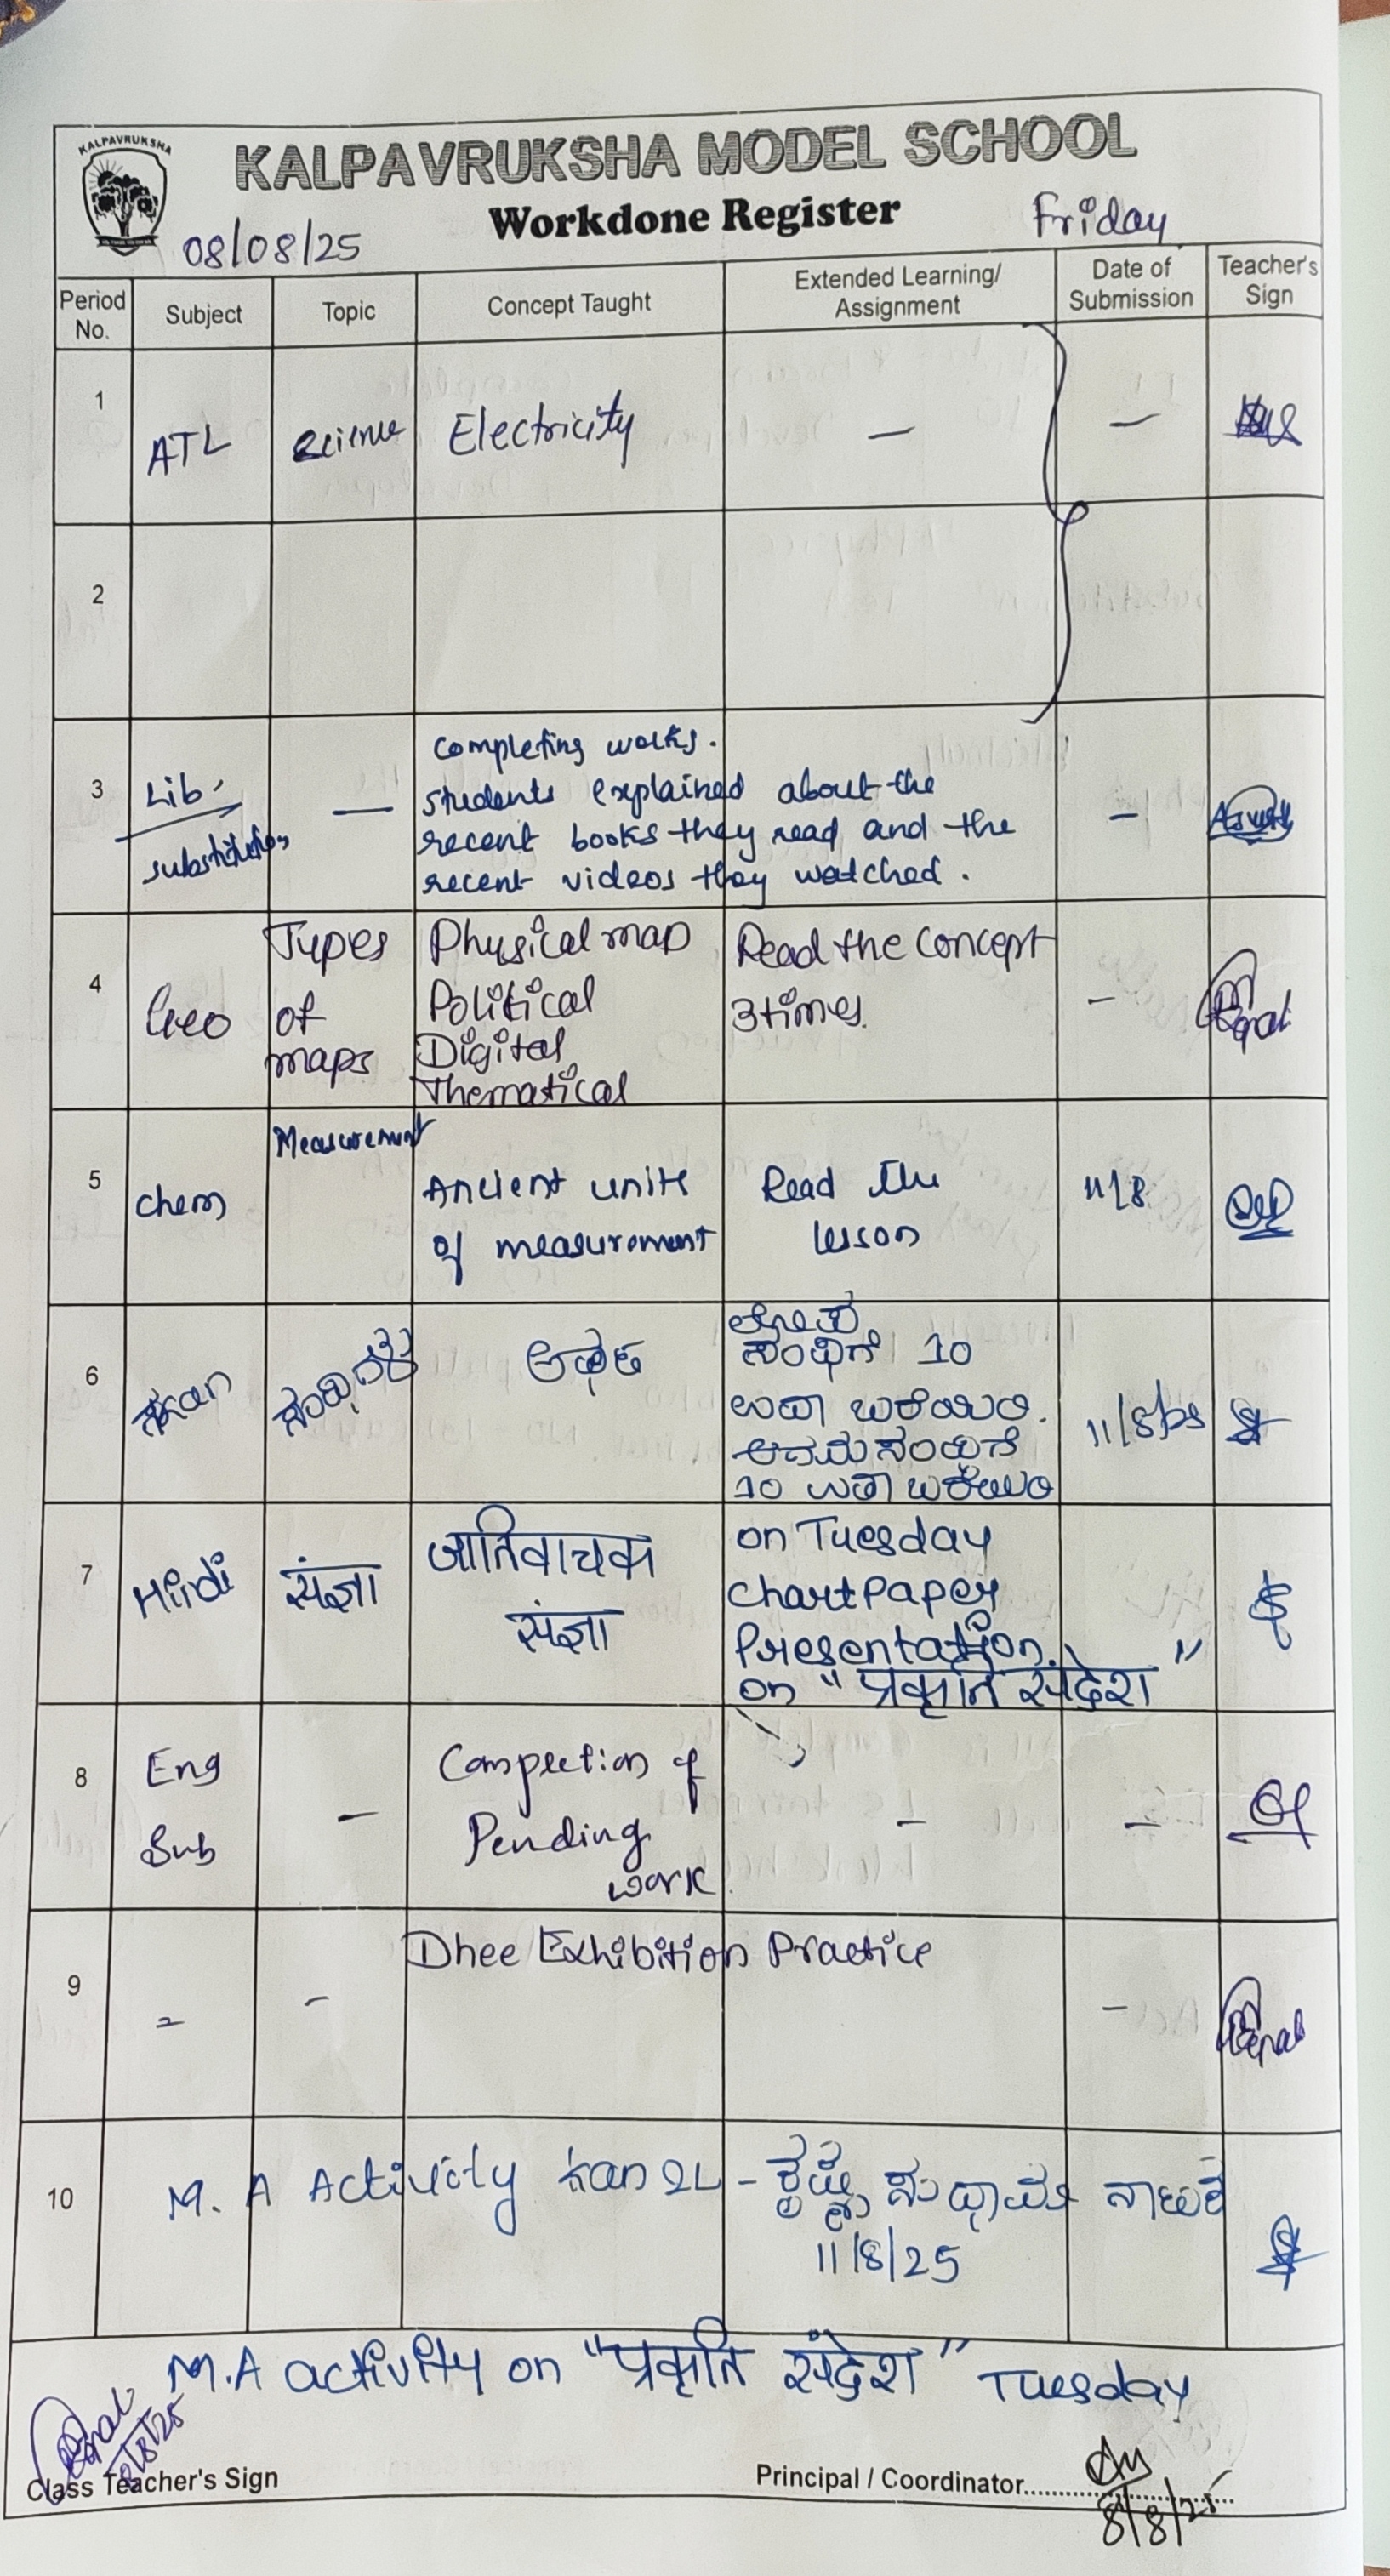 KALPAVRUKSHA
KALPAVRUKSHA MODEL SCHOOL
Workdone Register
08/08/25
Friday
Period No.
Subject
Topic
Concept Taught
Extended Learning/ Assignment
Date of Submission
Teacher's Sign
1
ATL
Science
Electricity
—
—
2
3
Lib.
substitution
—
Completing works.
students explained about the
recent books they read and the
recent videos they watched.
—
4
Geo
Types
of
maps
Physical map
Political
Digital
Thematical
Read the concept
3times.
—
5
Chem
Measurement
Ancient units
of measurement
Read the
lesson
11/8
6
Kan
ಲೋಪ
ಸಂಧಿಗೆ 10
ಉದಾ ಬರೆಯಿರಿ.
ಆದೇಶ ಸಂಧಿಗೆ
10 ಉದಾ ಬರೆಯಿರಿ
11/8/25
7
Hindi
संज्ञा
जातिवाचक
संज्ञा
on Tuesday
Chart Paper
Presentation.
on "प्रकृति संदेश"
8
Eng
Sub
—
Completion of
Pending
work.
—
—
9
–
–
Dhee Exhibition Practice
–
10
M. A Activity Kan 2L -
11/8/25
M.A activity on "प्रकृति संदेश" Tuesday
8/8/25
Class Teacher's Sign
Principal / Coordinator
8/8/25